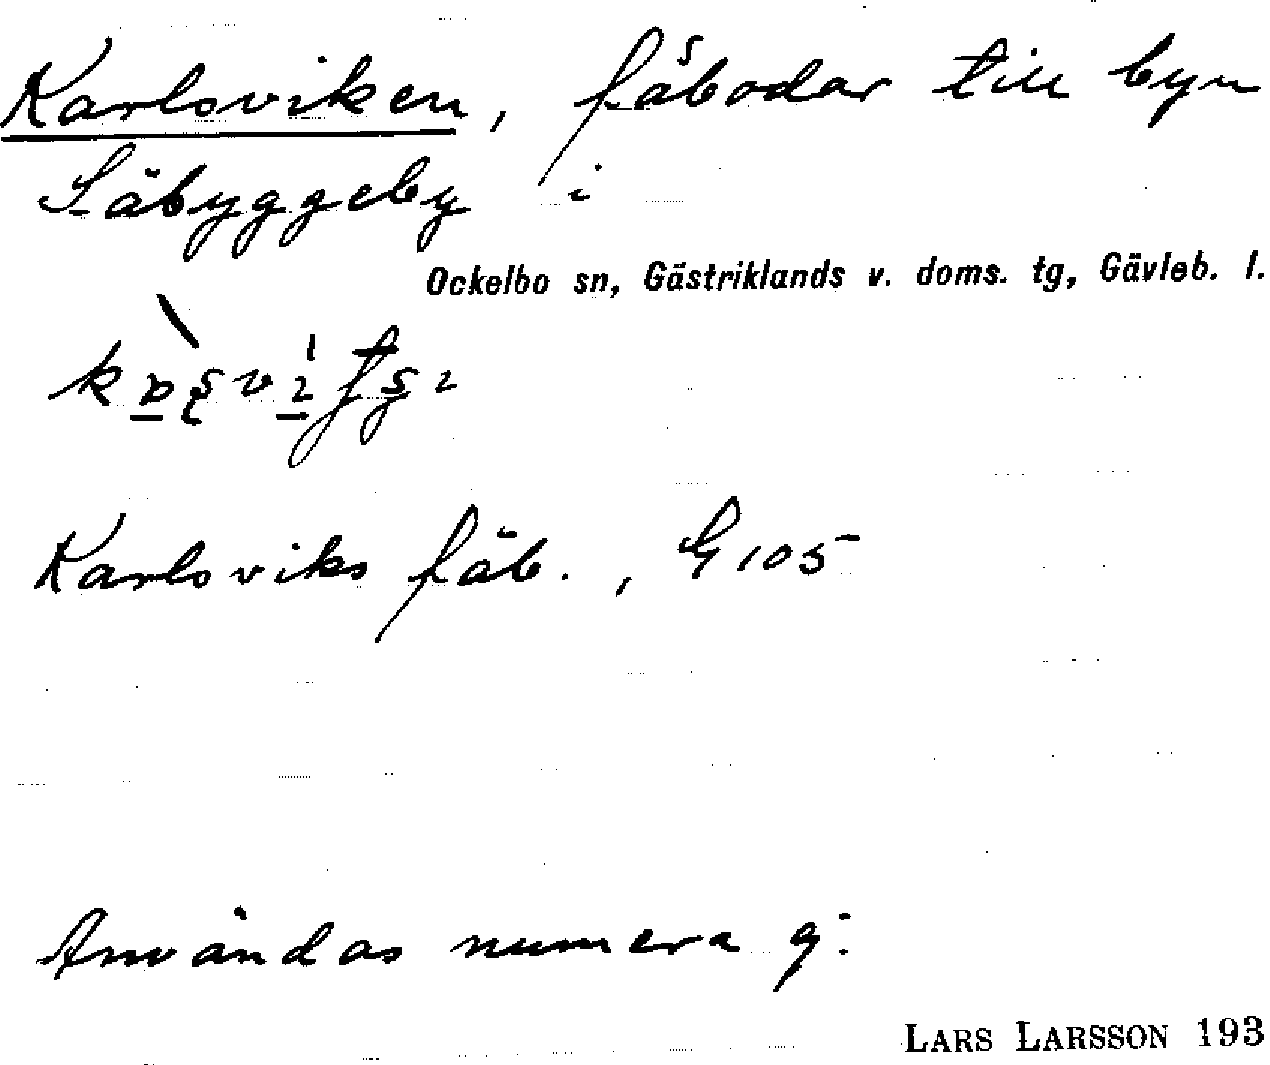 Karlsviken, fäbodar till byn
Säbyggeby i
Ockelbo sn, Gästriklands v. doms. tg, Gävleb. l.
Karlsviks fäb., G 105
Användas numera ej:
LARS LARSSON 193